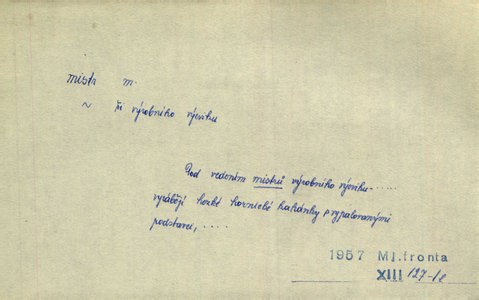 mistr m.
~ ři výrobního výcviku
Pod vedením mistrů výrobního výcviku.....
vyrábějí hezké hornické kahánky s vypalovanými
podstavci, ....
1957 Ml.fronta
XIII 127-